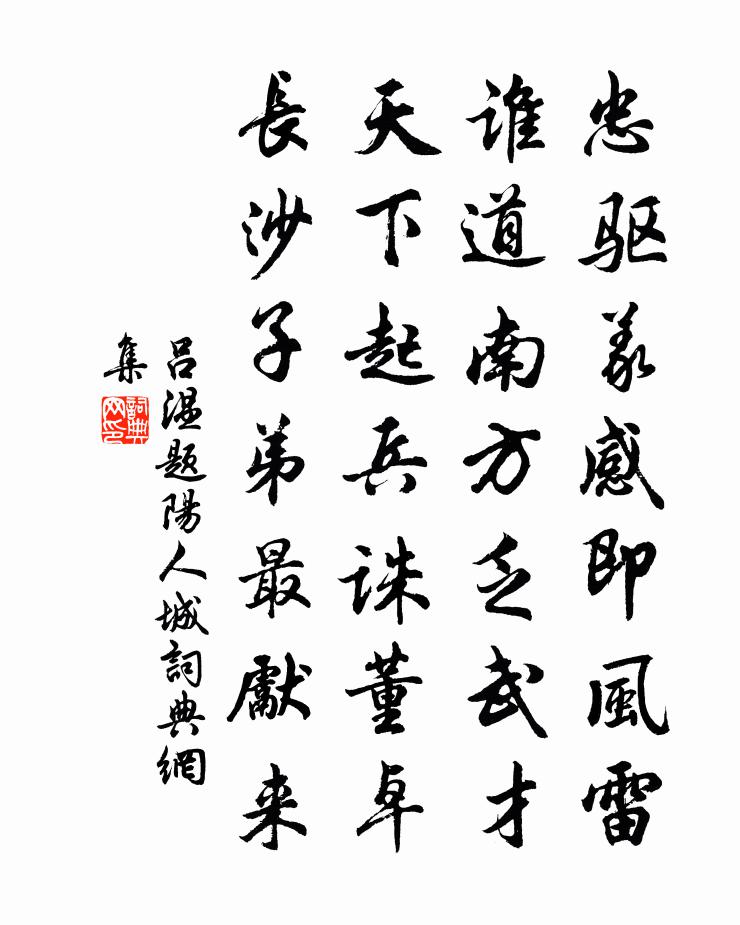 忠驱義感即風雷
誰道南方乏武才
天下起兵誅董卓
長沙子弟最獻来
吕温题陽人城詞典網
集
詞典
网印